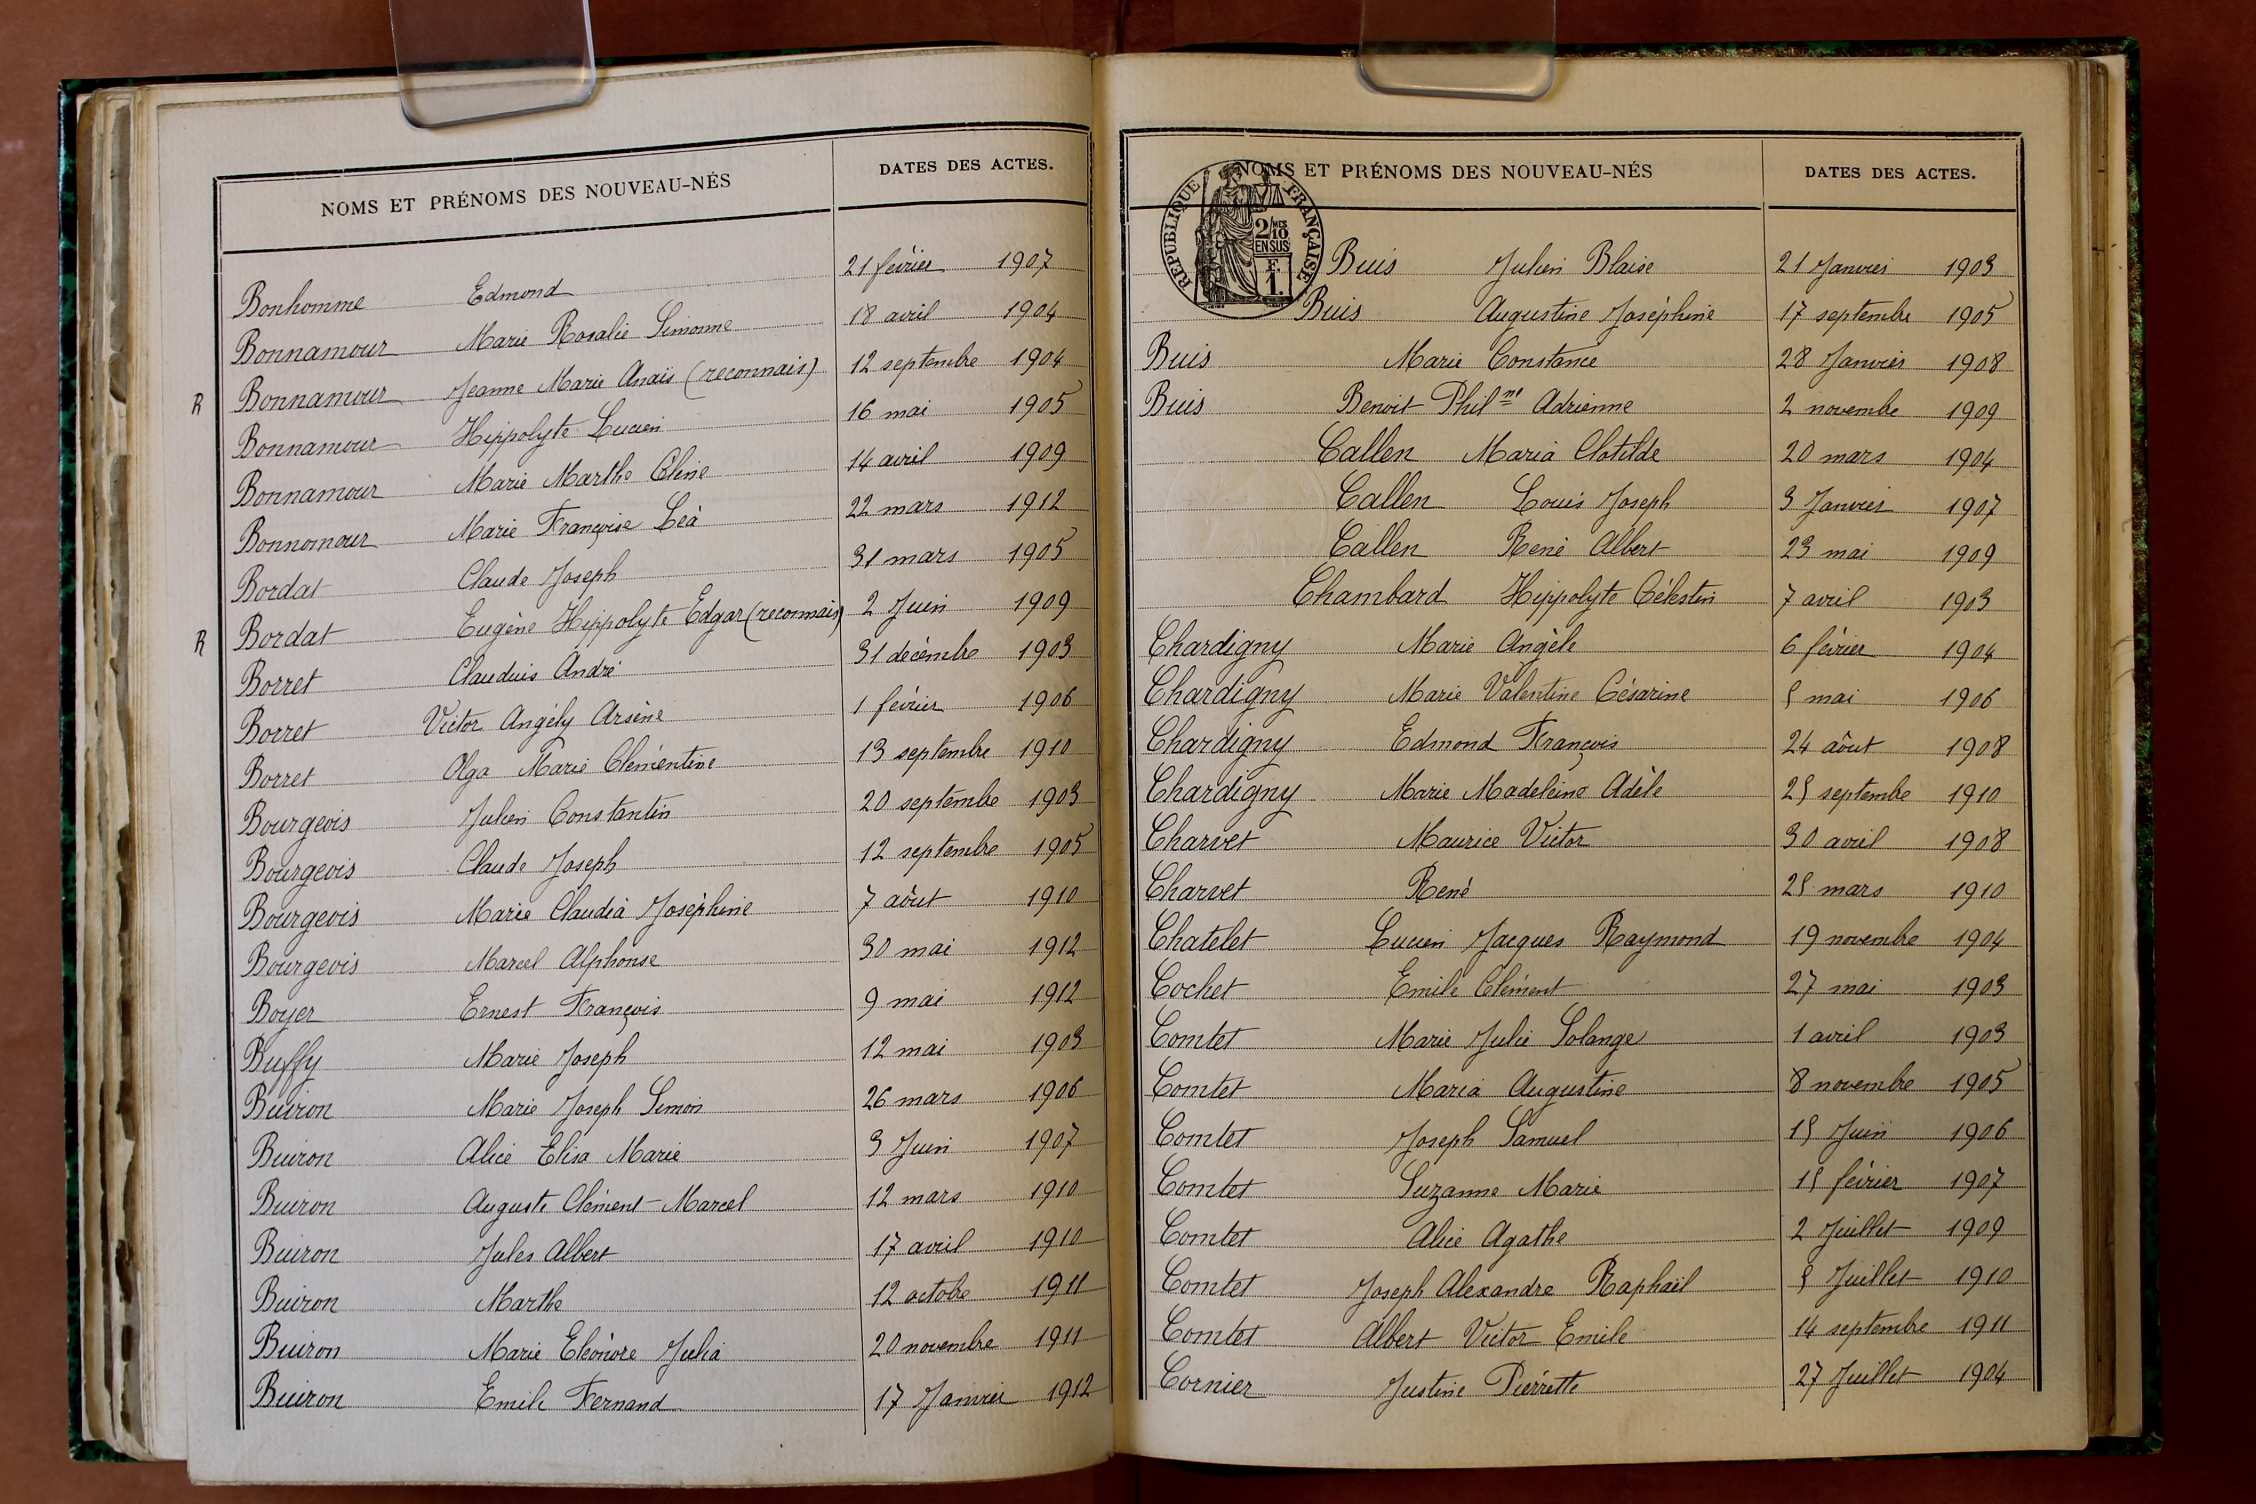 NOMS ET PRÉNOMS DES NOUVEAU-NÉS DATES DES ACTES.
Bonhomme Edmond 21 février 1907
Bonnamour Marie Rosalie Simonne 18 avril 1904
R Bonnamour Jeanne Marie Anaïs (reconnais) 12 septembre 1904
Bonnamour Hippolyte Lucien 16 mai 1905
Bonnamour Marie Marthe Céline 14 avril 1909
Bonnomour Marie Françoise Léa 22 mars 1912
Bordat Claude Joseph 31 mars 1905
R Bordat Eugène Hippolyte Edgar (reconnais) 2 Juin 1909
Borret Claudius André 31 décembre 1903
Borret Victor Angély Arsène 1 février 1906
Borret Olga Marie Clémentine 13 septembre 1910
Bourgeois Julien Constantin 20 septembre 1903
Bourgeois Claude Joseph 12 septembre 1905
Bourgeois Marie Claudia Joséphine 7 aôut 1910
Bourgeois Marcel Alphonse 30 mai 1912
Boyer Ernest François 9 mai 1912
Buffy Marie Joseph 12 mai 1903
Buiron Marie Joseph Simon 26 mars 1906
Buiron Alice Elisa Marie 3 Juin 1907
Buiron Auguste Clément-Marcel 12 mars 1910
Buiron Jules Albert 17 avril 1910
Buiron Marthe 12 octobre 1911
Buiron Marie Eléonore Julia 20 novembre 1911
Buiron Emile Fernand 17 Janvier 1912
NOMS ET PRÉNOMS DES NOUVEAU-NÉS DATES DES ACTES.
RÉPUBLIQUE FRANÇAISE
2/10 MES
EN SUS
F.
1.
Buis Julien Blaise 21 Janvier 1903
Buis Augustine Joséphine 17 septembre 1905
Buis Marie Constance 28 Janvier 1908
Buis Benoit Philne Adrienne 2 novembre 1909
Callen Maria Clotilde 20 mars 1904
Callen Louis Joseph 3 Janvier 1907
Callen René Albert 23 mai 1909
Chambard Hippolyte Célestin 7 avril 1903
Chardigny Marie Angèle 6 février 1904
Chardigny Marie Valentine Césarine 5 mai 1906
Chardigny Edmond François 24 aôut 1908
Chardigny Marie Madeleine Adèle 25 septembre 1910
Charvet Maurice Victor 30 avril 1908
Charvet René 25 mars 1910
Chatelet Lucien Jacques Raymond 19 novembre 1904
Cochet Emile Clément 27 mai 1903
Comtet Marie Julie Solange 1 avril 1903
Comtet Maria Augustine 8 novembre 1905
Comtet Joseph Samuel 15 Juin 1906
Comtet Suzanne Marie 15 février 1907
Comtet Alice Agathe 2 Juillet 1909
Comtet Joseph Alexandre Raphaël 5 Juillet 1910
Comtet Albert Victor Emile 14 septembre 1911
Cornier Justine Pierrette 27 Juillet 1904